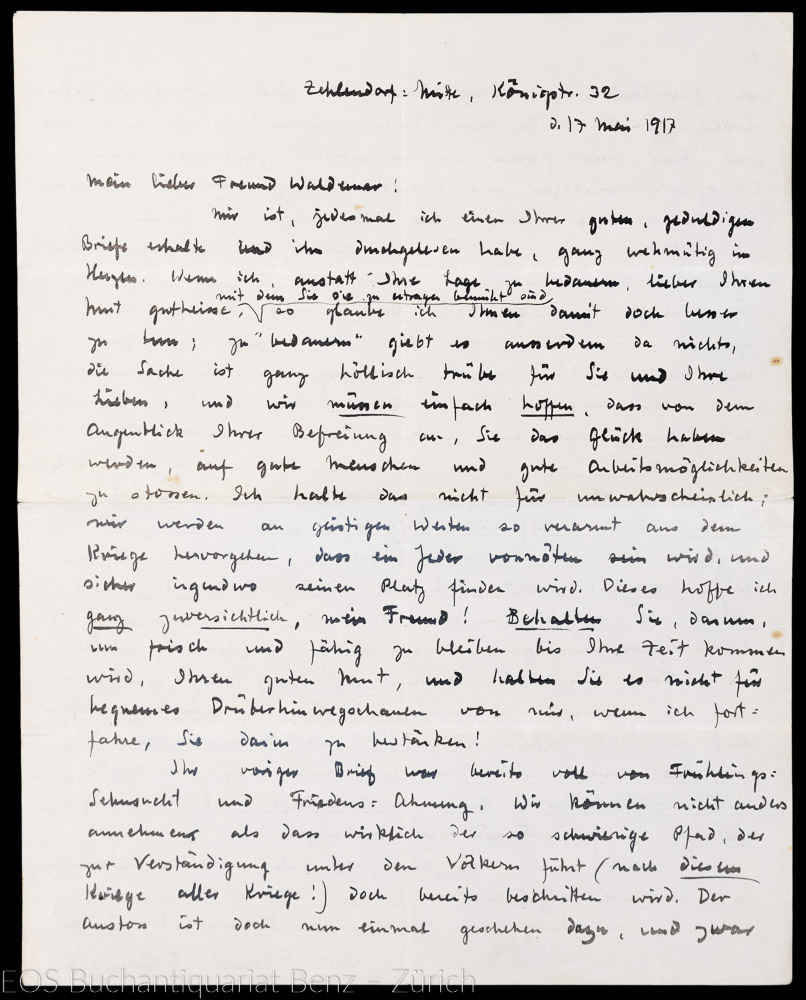 Zehlendorf-Mitte, Königstr. 32
d. 17 Mai 1917
Mein lieber Freund Waldemar!
Mir ist, jedesmal ich einen Ihrer guten, geduldigen
Briefe erhalte und ihn durchgelesen habe, ganz wehmütig im
Herzen. Wenn ich, anstatt Ihre Lage zu bedauern, lieber Ihren
mit dem Sie sie zu ertragen bemüht sind
Mut gutheisse, so glaube ich Ihnen damit doch besser
zu tun; zu "bedauern" giebt es ausserdem da nichts,
die Sache ist ganz höllisch trübe für Sie und Ihre
Lieben, und wir müssen einfach hoffen, dass von dem
Augenblick Ihrer Befreiung an, Sie das Glück haben
werden, auf gute Menschen und gute Arbeitsmöglichkeiten
zu stossen. Ich halte das nicht für unwahrscheinlich;
wir werden an geistigen Werten so verarmt aus dem
Kriege hervorgehen, dass ein Jeder vonnöten sein wird, und
sicher irgendwo seinen Platz finden wird. Dieses hoffe ich
ganz zuversichtlich, mein Freund! Behalten Sie, darum,
um frisch und fähig zu bleiben bis Ihre Zeit kommen
wird, Ihren guten Mut, und halten Sie es nicht für
bequemes Drüberhinwegschauen von mir, wenn ich fort-
fahre, Sie darin zu bestärken!
Ihr voriger Brief war bereits voll von Frühlings-
Sehnsucht und Friedens-Ahnung. Wir können nicht anders
annehmen als dass wirklich der so schwierige Pfad, der
zur Verständigung unter den Völkern führt (nach diesem
Kriege aller Kriege!) doch bereits beschritten wird. Der
Anstoss ist doch nun einmal geschehen dazu, und zwar
EOS Buchantiquariat Benz – Zürich